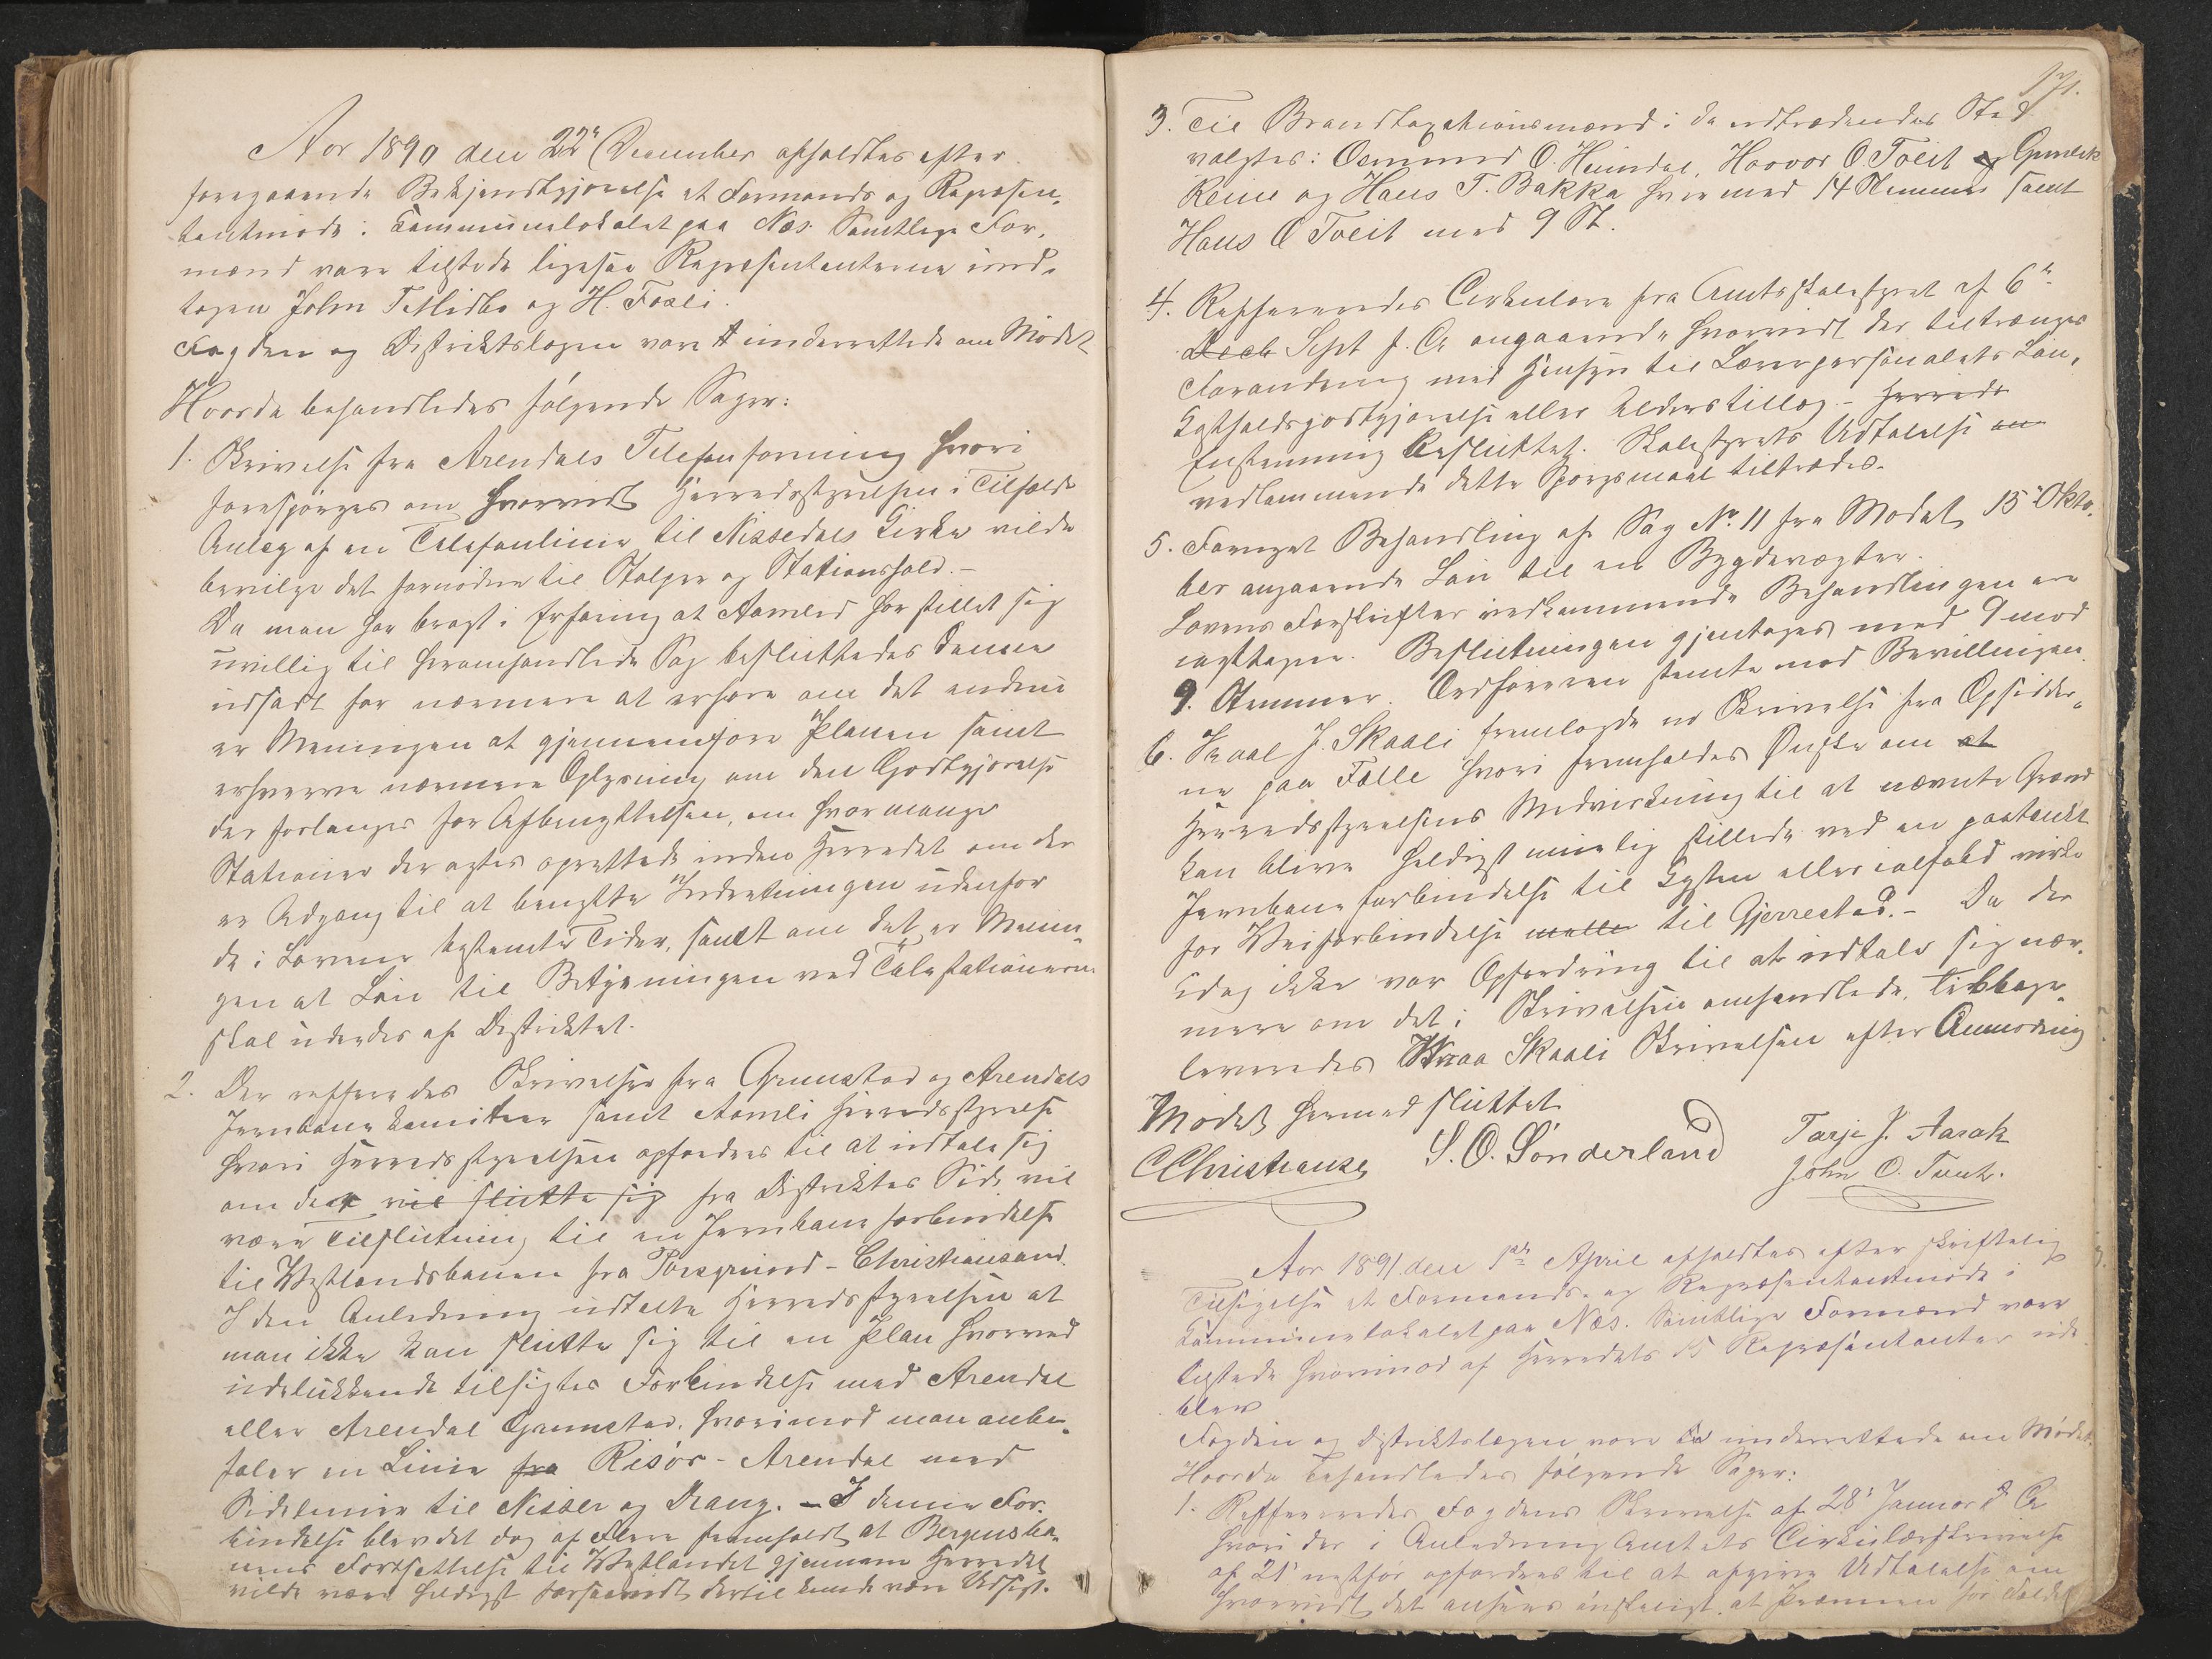 Aar 1890 den 22de December afholdtes efter
foregaaende Bekjendtgjørelse et Formands og Repræsen-
tantmøde i Kommunelokalet paa Næs. Samtlige For-
mænd vare tilstede ligesaa Repræsentanterne und-
tagen John T. Midbø og H. Fosli.
Fogden og Distriktslægen vare underrettede om Mødet
Hvorda behandledes følgende Sager:
1. Skrivelse fra Arendals Telefonforening hvori
forespørges om hvorvidt Herredsstyrelsen i Tilfælde
Anlæg af en Telefonlinie til Nissedals Kirke vilde
bevilge det fornødne til Stolper og Stationshold.-
Da man har bragt i Erfaring at Aamli har stillet sig
uvillig til heromhandlede Sag besluttedes denne
udsadt for nærmere at erfare om det endnu
er Meningen at gjennemføre Planen samt
erhverve nærmere Oplysning om den Godtgjørelse
der forlanges for Afbenyttelsen, om hvormange
Stationer der agtes oprettede inden Herredet om der
er Adgang til at benytte Indretningen udenfor
de i Lovene bestemte Tider, samt om det er Menin-
gen at Løn til Betjeningen ved Talestationerne
skal udredes af Distriktet.
2. Der refferedes Skrivelser fra Grimstad og Arendals
Jernbanekomiteer samt Aamli Herredsstyrelse
hvori Herredsstyrelsen opfordres til at udtale sig
om der vil slutte sig fra Distriktets Side vil
være Tilslutning til en Jernbaneforbindelse
til Vestlandsbanen fra Porsgrund - Christiansand.
I den Anledning udtalte Herredsstyrelsen at
man ikke kan slutte sig til en Plan hvorved
udelukkende tilsigtes Forbindelse med Arendal
eller Arendal Grimstad. hvorimod man anbe-
faler en Linie fra Risør - Arendal med
Sidelinier til Nisser og Drang. - I denne For-
bindelse blev det dog af Flere fremholdt at Bergensba-
nens Fortsættelse til Vestlandet gjennem Herredet
vilde være heldigst forsaavidt dertil kunde være Udsigt.
171.
3. Til Brandtaxationsmænd i de udtrædendes Sted
valgtes: Osmund O. Heimdal, Haavor O. Tveit og Gunleik
Reine og Hans T. Bakka hver med 14 Stemmer samt
Hans O Tveit med 9 St.
4. Reffereredes Cirkulære fra Amtsskolestyret af 6te
Decb Sept f. A. angaaende hvorvidt der tiltrænges
Forandring med Hensyn til Lærerpersonalets Løn,
Kostholdsgodtgjørelse eller Alderstillæg. - Herreds
Enstemmig Besluttet. Skolestyrets Udtalelse an
vedkommende dette Spørgsmaal tiltrædes.
5. Fornyet Behandling af Sag No. 11 fra Mødet 15de Okto-
ber angaaende Løn til en Bygdevægter.
Lovens Forskrifter vedkommende Behandlingen ere
iagttagne. Beslutningen gjentages med 9 mod
9. Stemmer. Ordføreren stemte mod Bevillingen.
6. Knal J. Skaali fremlagde en Skrivelse fra Opsidder-
ne paa Felle hvori fremholdes Ønske om at
Herredsstyrelsens Medvirkning til at nævnte Grænd
kan blive heldigst muelig stillede ved en paatænkt
Jernbaneforbindelse til Kysten eller ialfald virke
for Veiforbindelse mellem til Gjerrestad. - Da der
idag ikke var Opfordring til at udtale sig nær-
mere om det i Skrivelsen omhandlede, tilbage-
leveredes Skaali Skrivelsen efter Anmodning
Mødet hermed sluttet
CChristiansen S. O. Sønderland Tarje J. Aasak
John O. Tveit.
Aar 1891 den 1ste April afholdtes efter skriftelig
Tilsigelse et Formands- og Repræsentantmøde i
Kommunelokalet paa Næs. Samtlige Formænd vare
tilstede hvorimod af Herredets 15 Repræsentanter ude
blev
Fogden og Distriktslægen vare underrettede om Mødet.
Hvorda behandledes følgende Sager:
1. Reffereredes Fogdens Skrivelse af 28de Januar d. A.
hvori der i Anledning Amtets Cirkulærskrivelse
af 21de næstfør opfordres til at afgive Udtalelse om
hvorvidt det ansees ønskeligt at Præmien for Fældelse